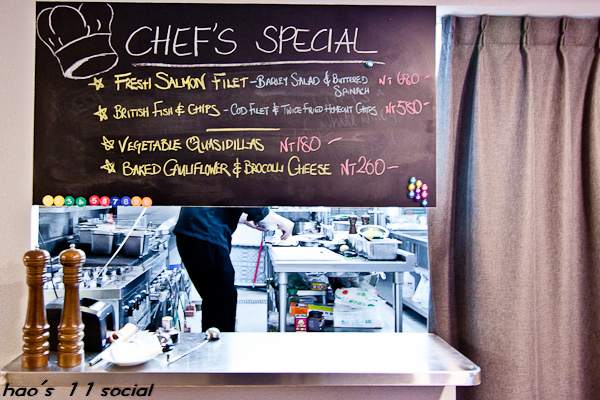 CHEF'S SPECIAL
FRESH SALMON FILET - BARLEY SALAD & BUTTERED SPINACH NT 680-
BRITISH FISH & CHIPS - COD FILET & TWICE FRIED HOMECUT CHIPS NT 380-
VEGETABLE QUASIDILLAS NT 180-
BAKED CAULIFLOWER & BROCOLLI CHEESE NT 260-
hao's 11 social